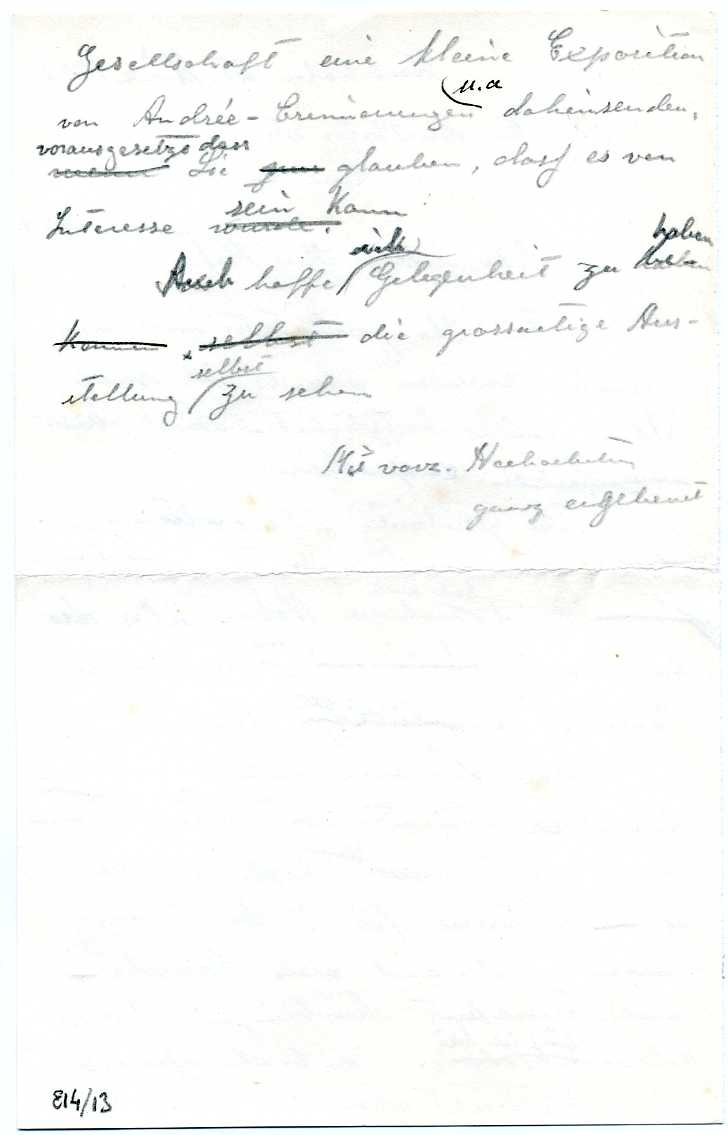 Gesellschaft eine kleine Exposition
u.a
von Andrée-Erinnerungen dahinsenden,
vorausgesetzt dass
wenn Sie glauben, dass es von
sein kann
Interesse wurde.
haben
Auch hoffe ich Gelegenheit zu haben
können, selbst die grossartige Aus-
selbst
stellung zu sehen
Mit vorz. Hochachtung
ganz ergebenst
E14/13